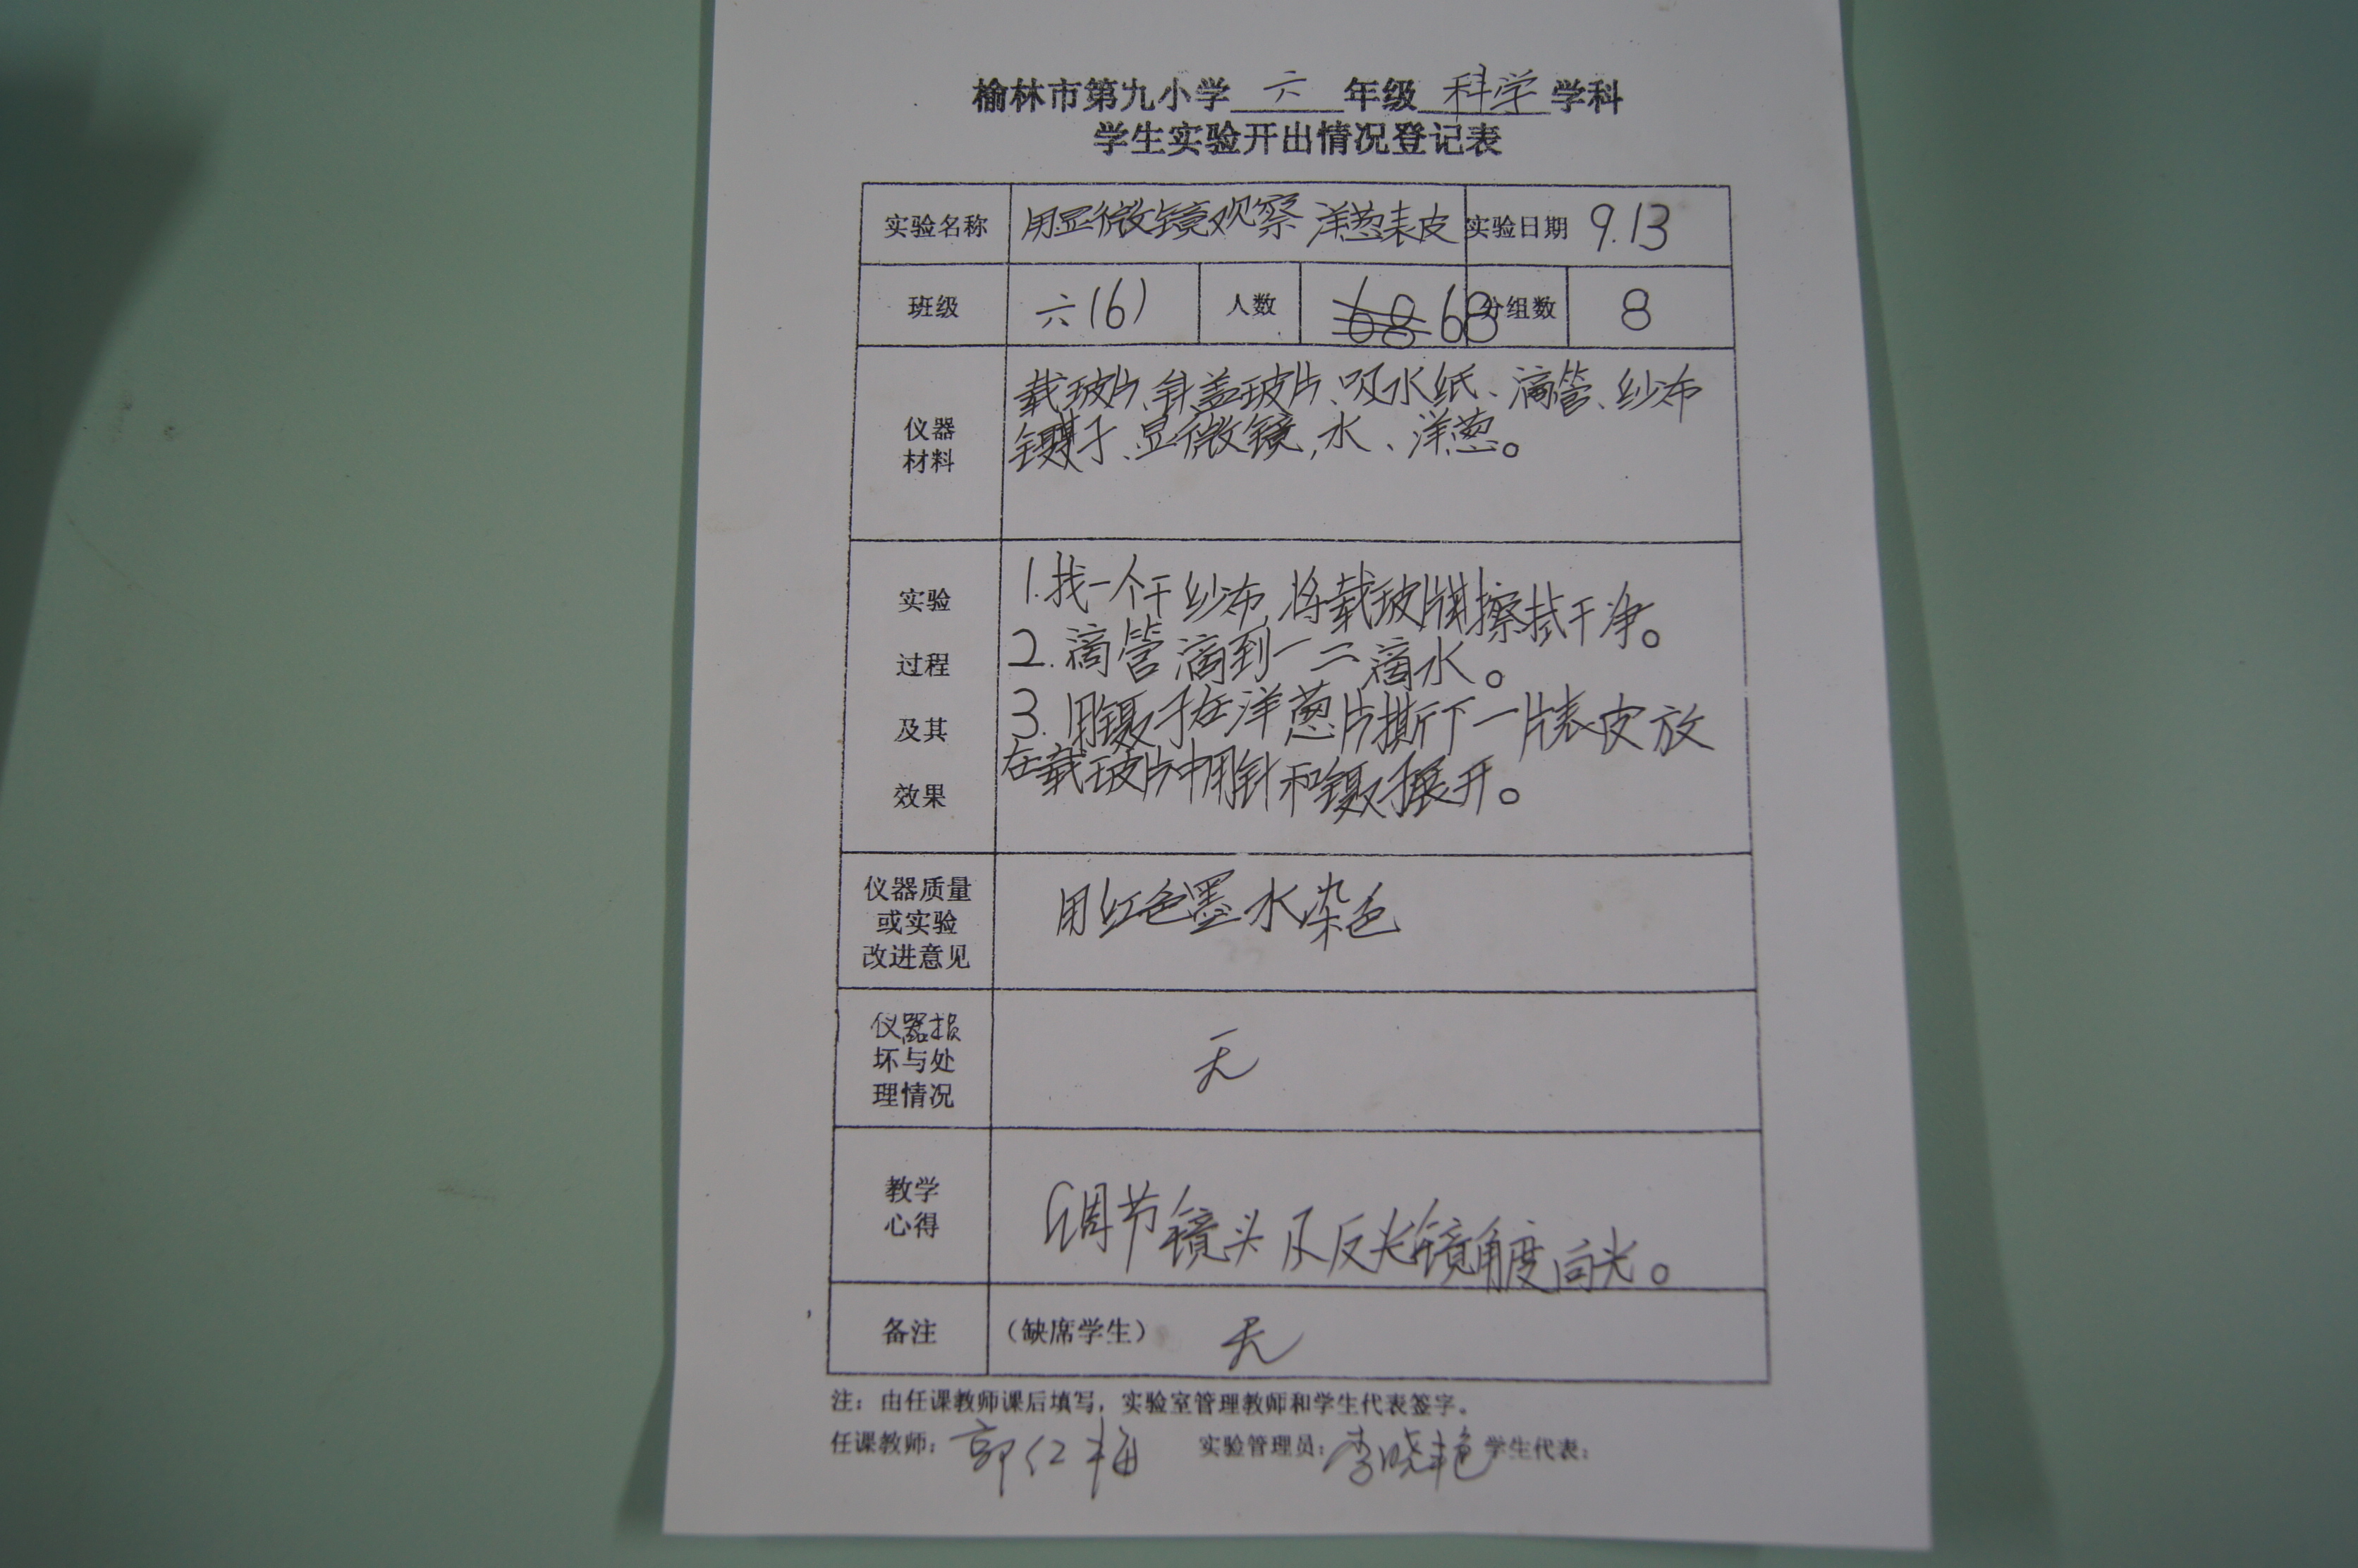 榆林市第九小学 六 年级 科学 学科
学生实验开出情况登记表
实验名称 用显微镜观察洋葱表皮 实验日期 9.13
班级 六(6) 人数 68 68 分组数 8
仪器
材料
载玻片、针、盖玻片、吸水纸、滴管、纱布
镊子、显微镜,水、洋葱。
实验
过程
及其
效果
1.找一个干纱布,将载玻片擦拭干净。
2.滴管滴到一二滴水。
3.用镊子在洋葱片撕下一片表皮放
在载玻片中用针和镊子展开。
仪器质量
或实验
改进意见
用红色墨水染色
仪器损
坏与处
理情况
无
教学
心得
调节镜头及反光镜角度向光。
备注 (缺席学生) 无
注:由任课教师课后填写,实验室管理教师和学生代表签字。
任课教师: 郭红梅 实验管理员: 李晓艳 学生代表: